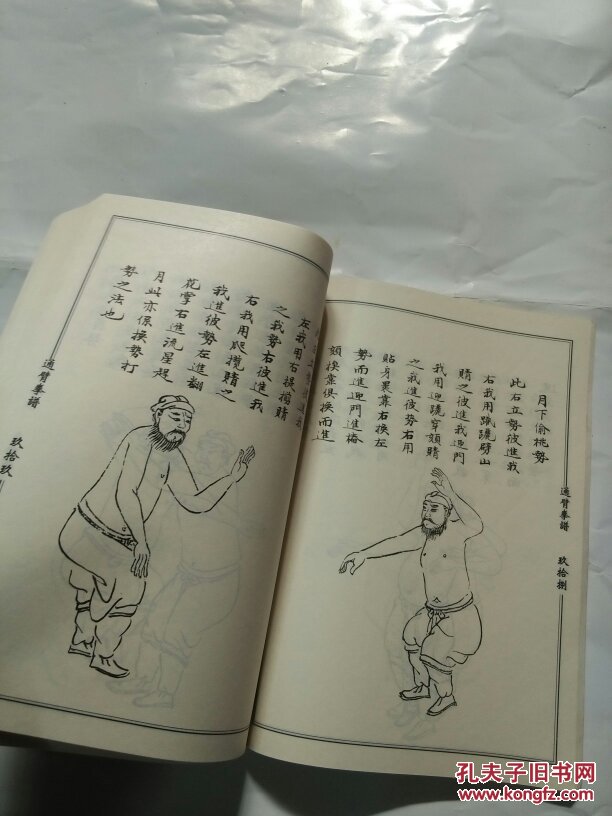 月下偷桃勢
此右立勢彼進我
右我用蹴躐劈山
賭之彼進我迎門
我用迎躐穿頦賭
之我進彼勢右用
貼身裹靠右換左
勢而進迎門進梅
頦挨靠俱換而進
通臂拳譜
玖拾捌
左我用右提攔賭
之我勢右彼進我
右我用爬攬賭之
我進彼勢左進翻
花掌右進流星趕
月此亦保換勢打
勢之法也
通臂拳譜
玖拾玖
孔夫子旧书网
www.kongfz.com